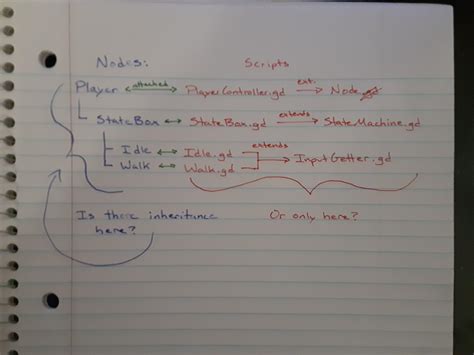 Nodes: Scripts
Player attached PlayerController.gd ext. Node.gd
StateBox StateBox.gd extends StateMachine.gd
Idle Idle.gd extends
Walk Walk.gd InputGetter.gd
Is there inheritance Or only here?
here?